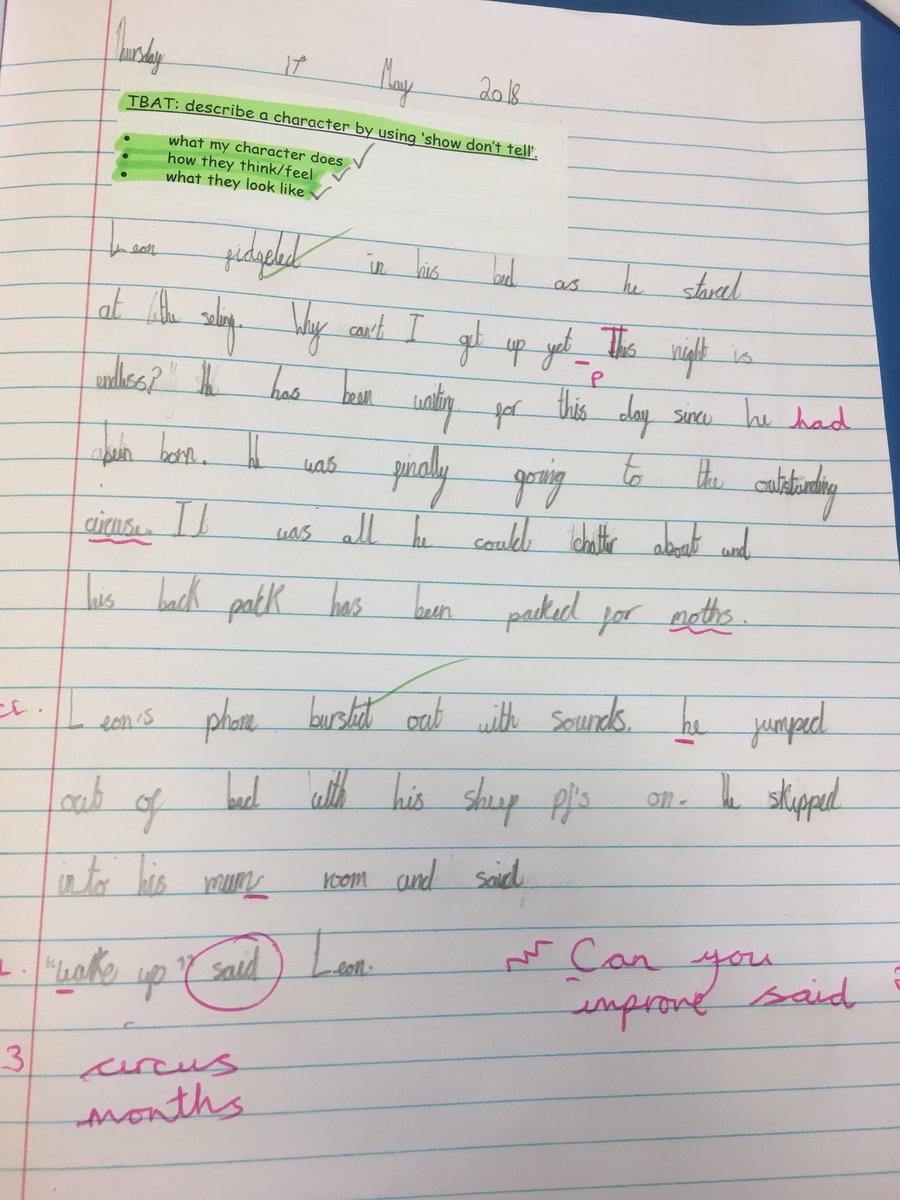 Thursday 17th May 2018
TBAT: describe a character by using 'show don't tell'.
• what my character does
• how they think/feel
• what they look like
Leon fidgeted in his bed as he stared
at the seling. Why can't I get up yet This night is
P
endless?" He has been waiting for this day since he had
been born. He was finally going to the outstanding
circuse. It was all he could chatter about and
his back pack has been packed for moths.
Leon's phone bursted out with sounds. he jumped
out of bed with his sheep pj's on. He skipped
into his mums room and said
"wake up" said Leon.
Can you
improve said
3 circus
months